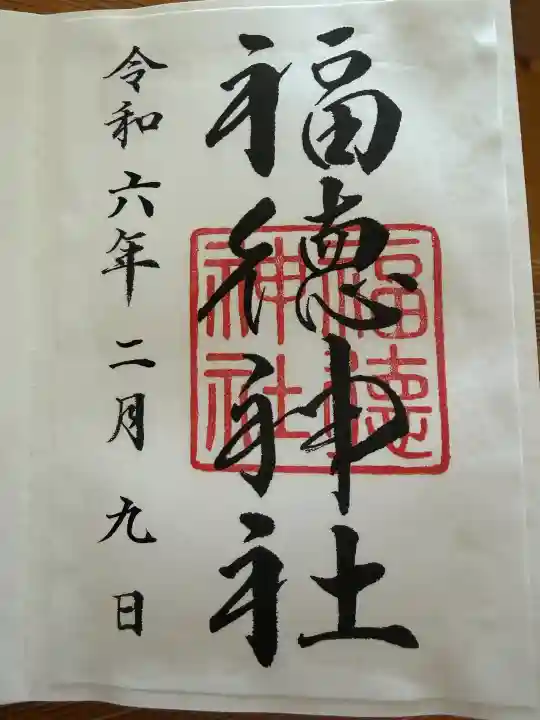 福徳神社
福徳神社
令和六年二月九日